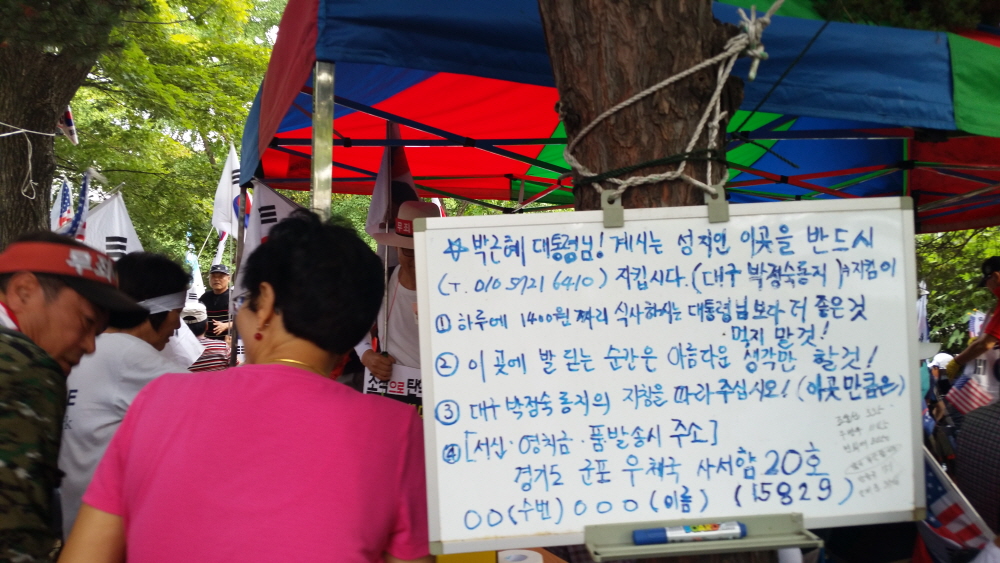 ☆ 박근혜 대통령님! 계시는 성지인 이곳을 반드시
(T. 010 5721 6410) 지킵시다. (대구 박정숙동지) 지킴이
① 하루에 1400원 짜리 식사하시는 대통령님보다 더 좋은것
먹지 말것!
② 이 곳에 발 딛는 순간은 아름다운 생각만 할것!
③ 대구 박정숙 동지의 지침을 따라 주십시오! (이곳만큼은)
④ [서신·영치금·품발송시 주소]
경기도 군포 우체국 사서함 20호
00(수번) 000(이름) (15829)
무죄